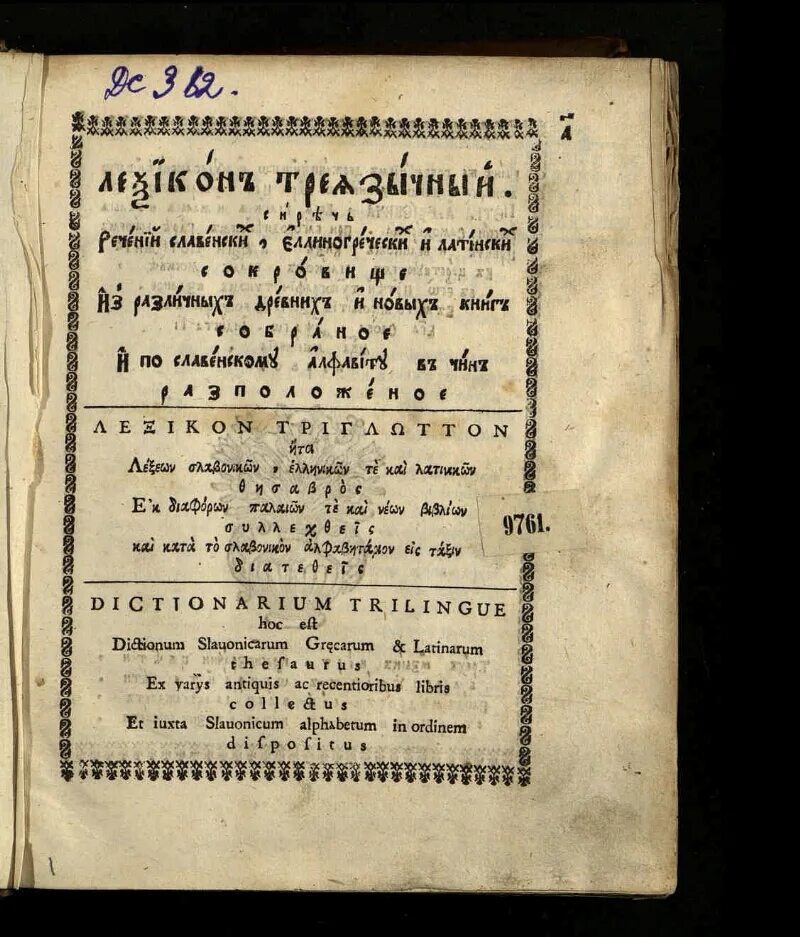 Дс 312.
а҃
леѯїко́нъ треѧзы́чный.
сирѣчь
Рече́нїй славе́нскихъ, є҆́ллиногре́ческихъ и҆ лати́нскихъ
сокро́вище
И҆з̾ разли́чныхъ дре́внихъ и҆ но́выхъ кни́гъ
собра́ное
И҆ по славе́нскомꙋ а҆лфави́тꙋ въ чи́нъ
разположе́ное
ΛΕΞΙΚΟΝ ΤΡΙΓΛΩΤΤΟΝ
ἤτοι
Λέξεων σλαβονικῶν, ἑλληνικῶν τὲ καὶ λατινικῶν
θησαβρὸς
Ἐκ διαφόρων παλαιῶν τὲ καὶ νέων βιβλίων
συλλεχθεῖς
9761.
καὶ κατὰ τὸ σλαβονικὸν ἀλφαβητάριον εἰς τάξιν
διατεθεῖς
DICTIONARIUM TRILINGUE
hoc eſt
Dictionum Slauonicarum Gręcarum & Latinarum
theſaurus
Ex varÿs antiquis ac recentioribus libris
collectus
Et iuxta Slauonicum alphabetum in ordinem
diſpoſitus